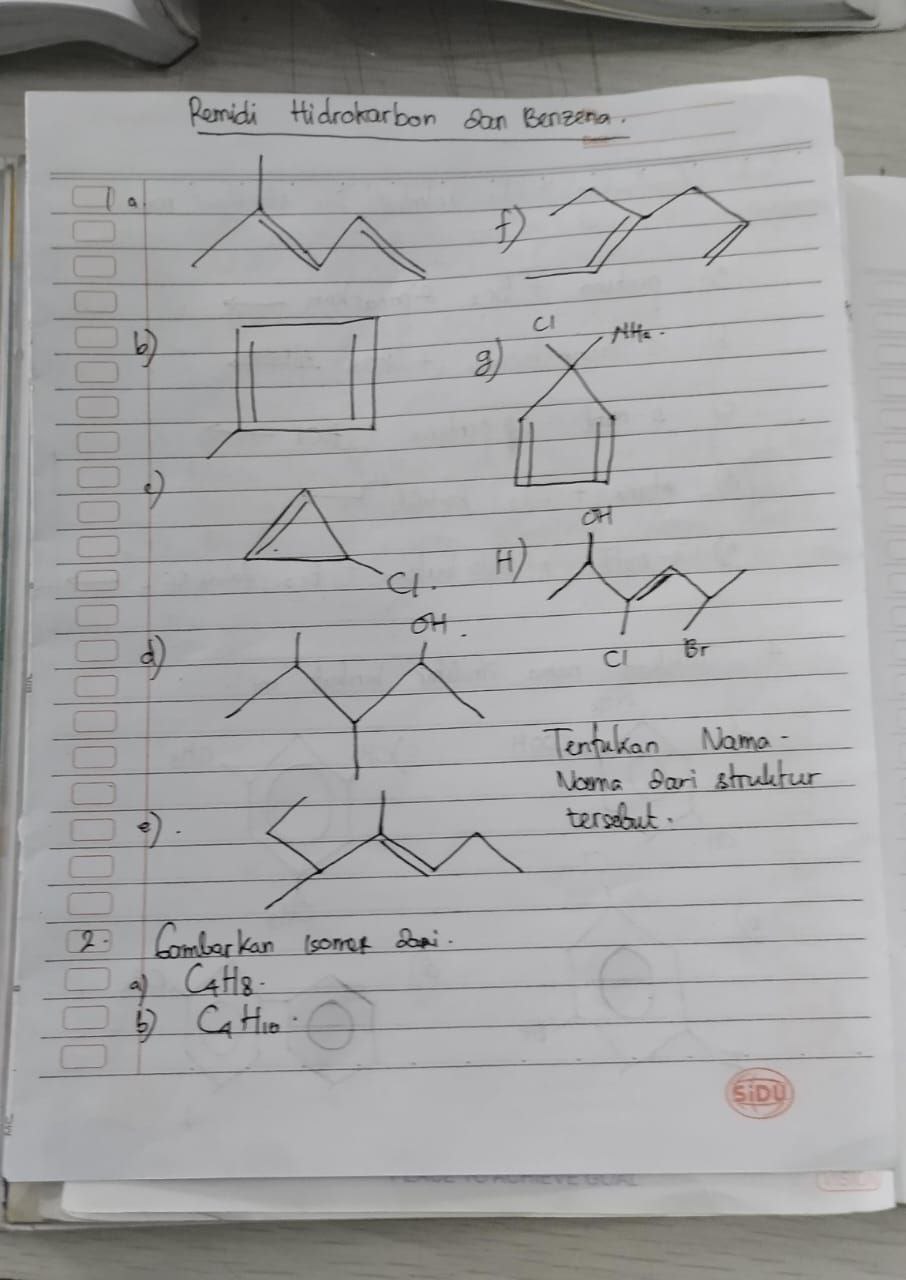 Remidi Hidrokarbon dan Benzena.
1 a.
b)
c)
Cl.
d)
OH.
e).
f)
g)
Cl
NH2.
H)
OH
Cl
Br
Tentukan Nama-
Nama dari struktur
tersebut.
2. Gambarkan isomer dari.
a) C4H8.
b) C4H10.
SiDU